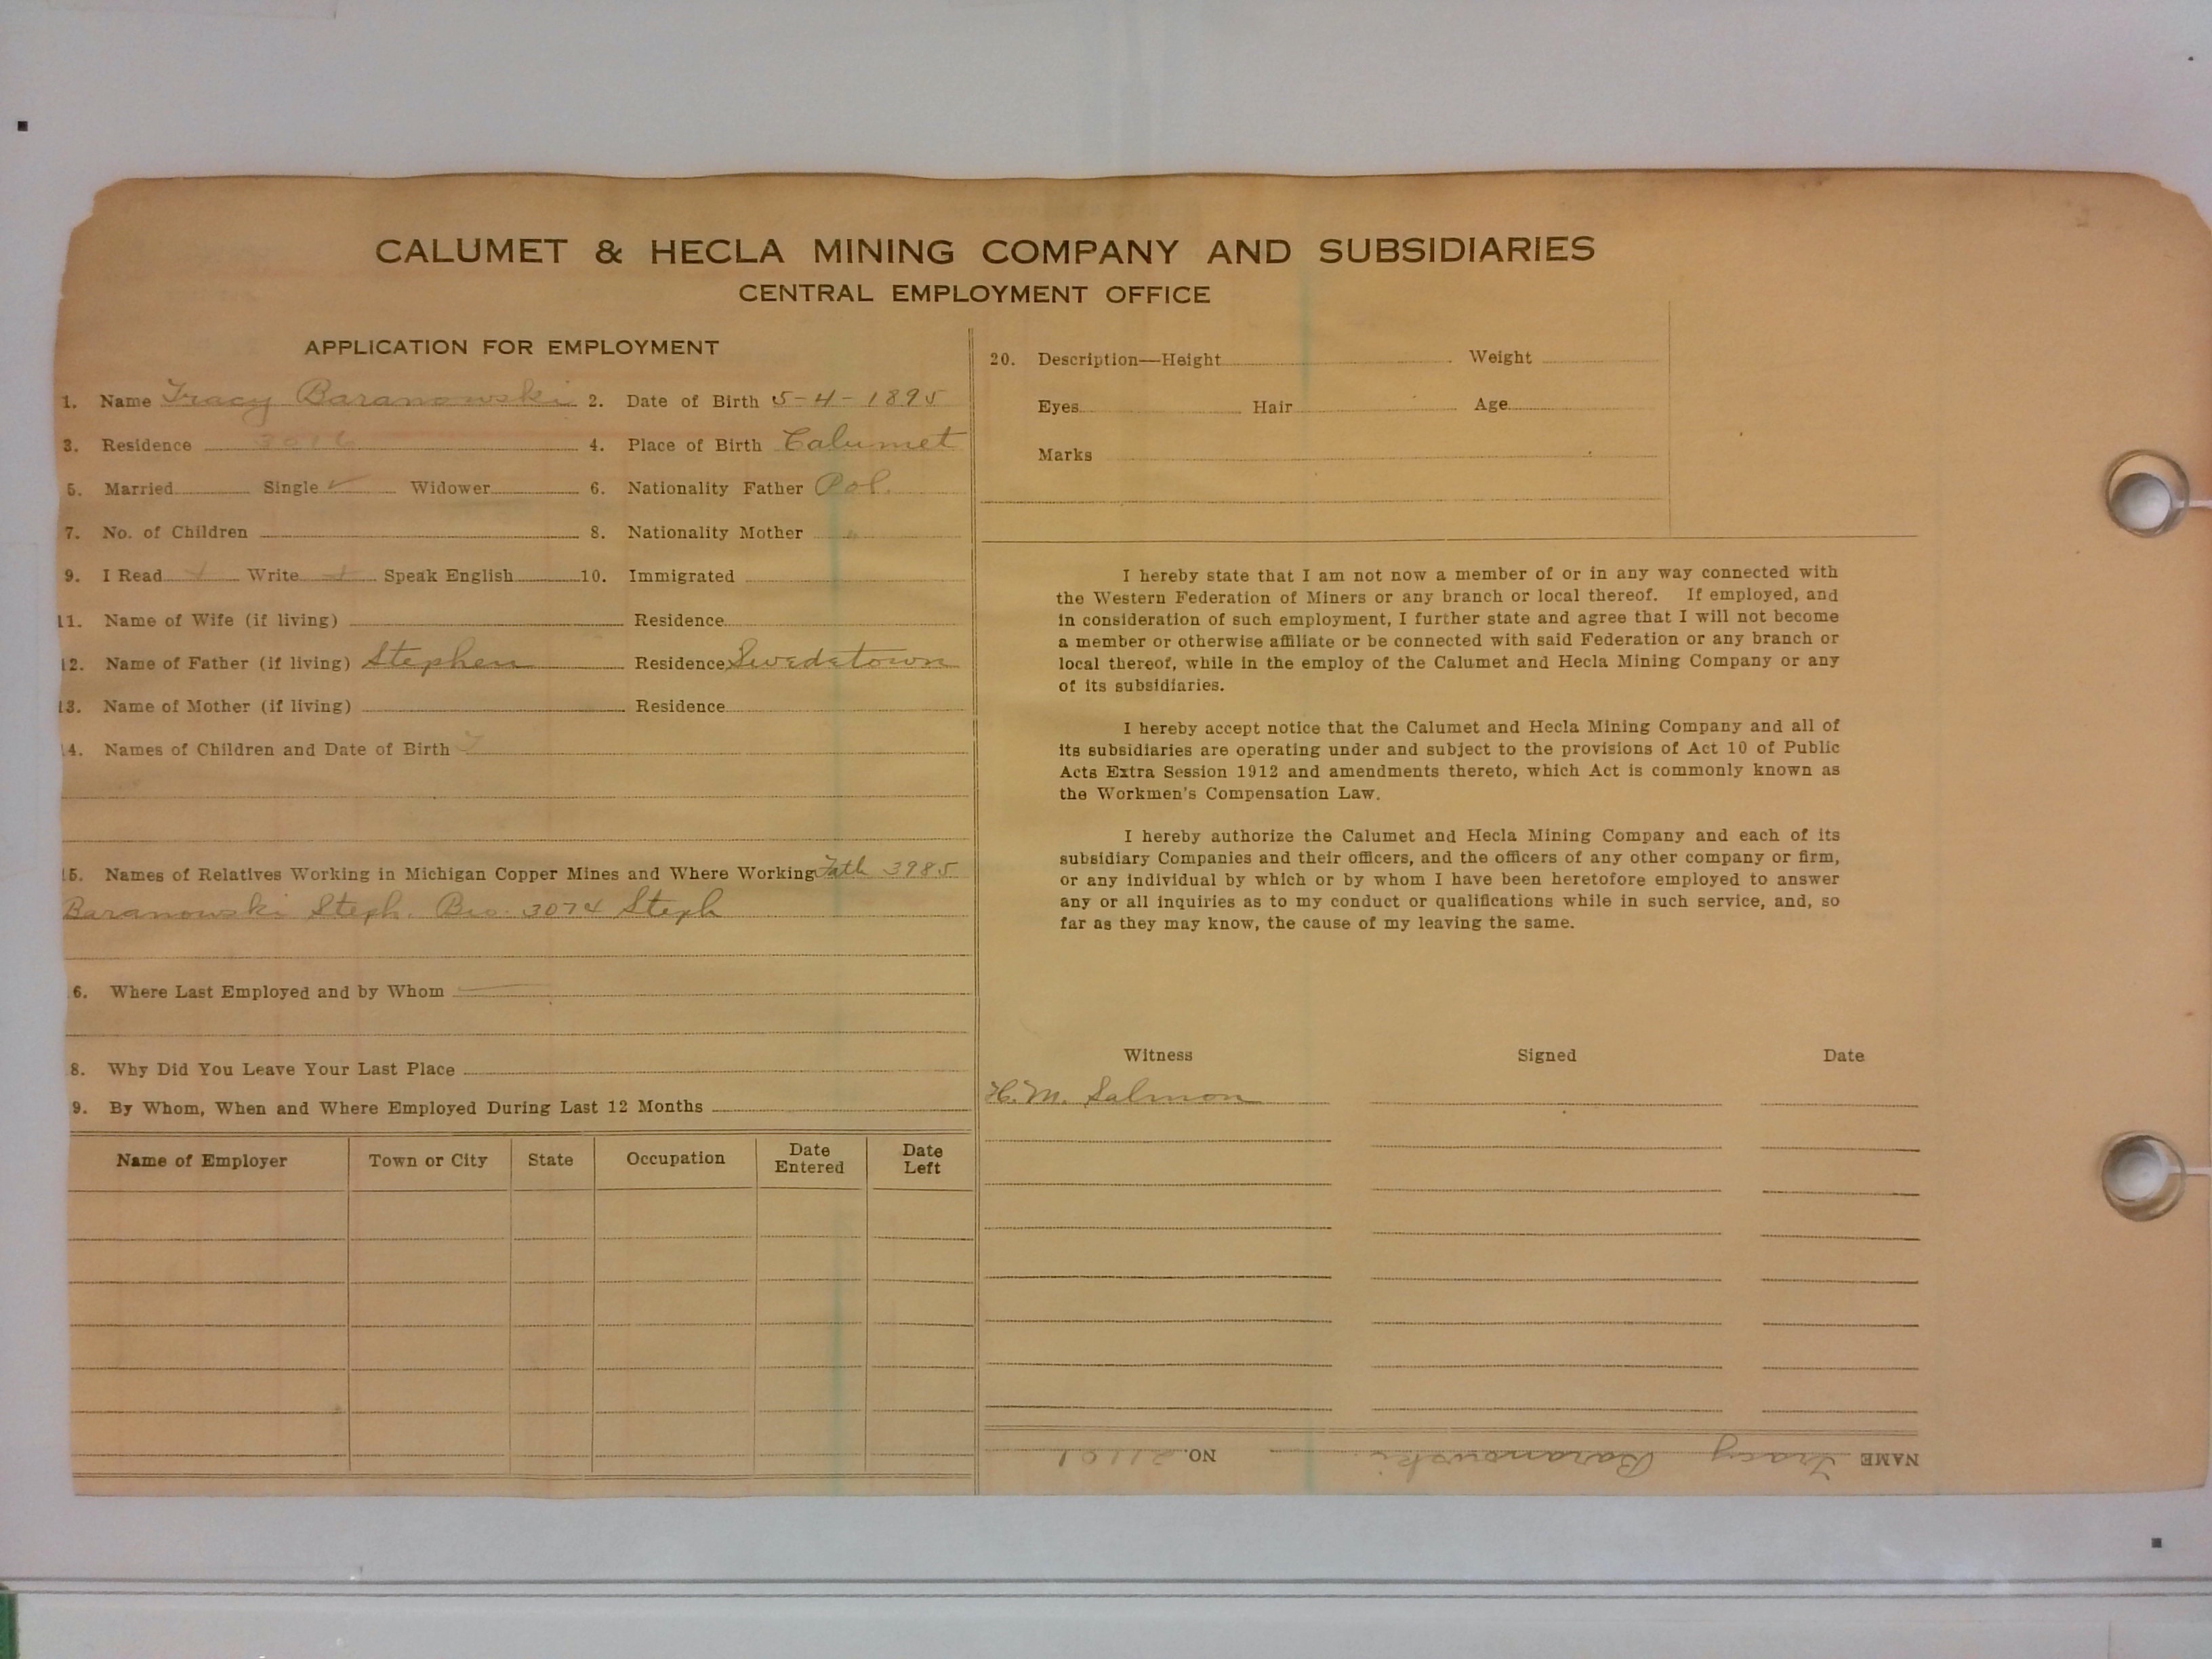 CALUMET & HECLA MINING COMPANY AND SUBSIDIARIES
CENTRAL EMPLOYMENT OFFICE
APPLICATION FOR EMPLOYMENT
1. Name Tracy Baranowski 2. Date of Birth 5-4-1895
3. Residence 4. Place of Birth Calumet
5. Married Single ✓ Widower 6. Nationality Father Pol.
7. No. of Children 8. Nationality Mother "
9. I Read Write Speak English 10. Immigrated
11. Name of Wife (if living) Residence
12. Name of Father (if living) Stephen Residence Swedetown
13. Name of Mother (if living) Residence
14. Names of Children and Date of Birth
15. Names of Relatives Working in Michigan Copper Mines and Where Working Fath 3985
Baranowski Steph. Bro. 3074 Steph
6. Where Last Employed and by Whom
8. Why Did You Leave Your Last Place
9. By Whom, When and Where Employed During Last 12 Months
Name of Employer Town or City State Occupation Date Entered Date Left
20. Description—Height Weight
Eyes Hair Age
Marks
I hereby state that I am not now a member of or in any way connected with
the Western Federation of Miners or any branch or local thereof. If employed, and
in consideration of such employment, I further state and agree that I will not become
a member or otherwise affiliate or be connected with said Federation or any branch or
local thereof, while in the employ of the Calumet and Hecla Mining Company or any
of its subsidiaries.
I hereby accept notice that the Calumet and Hecla Mining Company and all of
its subsidiaries are operating under and subject to the provisions of Act 10 of Public
Acts Extra Session 1912 and amendments thereto, which Act is commonly known as
the Workmen's Compensation Law.
I hereby authorize the Calumet and Hecla Mining Company and each of its
subsidiary Companies and their officers, and the officers of any other company or firm,
or any individual by which or by whom I have been heretofore employed to answer
any or all inquiries as to my conduct or qualifications while in such service, and, so
far as they may know, the cause of my leaving the same.
Witness Signed Date
H. M. Salmon
NAME Tracy Baranowski NO. 21101